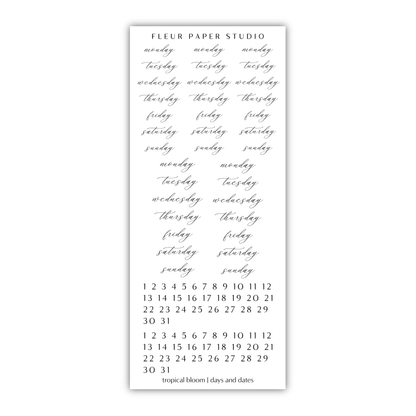 FLEUR PAPER STUDIO
monday monday monday
tuesday tuesday tuesday
wednesday wednesday wednesday
thursday thursday thursday
friday friday friday
saturday saturday saturday
sunday sunday sunday
monday monday
tuesday tuesday
wednesday wednesday
thursday thursday
friday friday
saturday saturday
sunday sunday
1 2 3 4 5 6 7 8 9 10 11 12
13 14 15 16 17 18 19 20 21
22 23 24 25 26 27 28 29
30 31
1 2 3 4 5 6 7 8 9 10 11 12
13 14 15 16 17 18 19 20 21
22 23 24 25 26 27 28 29
30 31
tropical bloom | days and dates